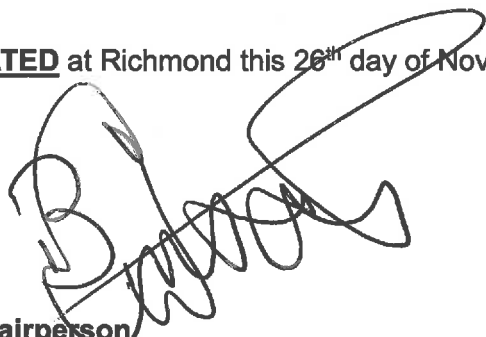 ATED at Richmond this 26th day of Nov
airperson